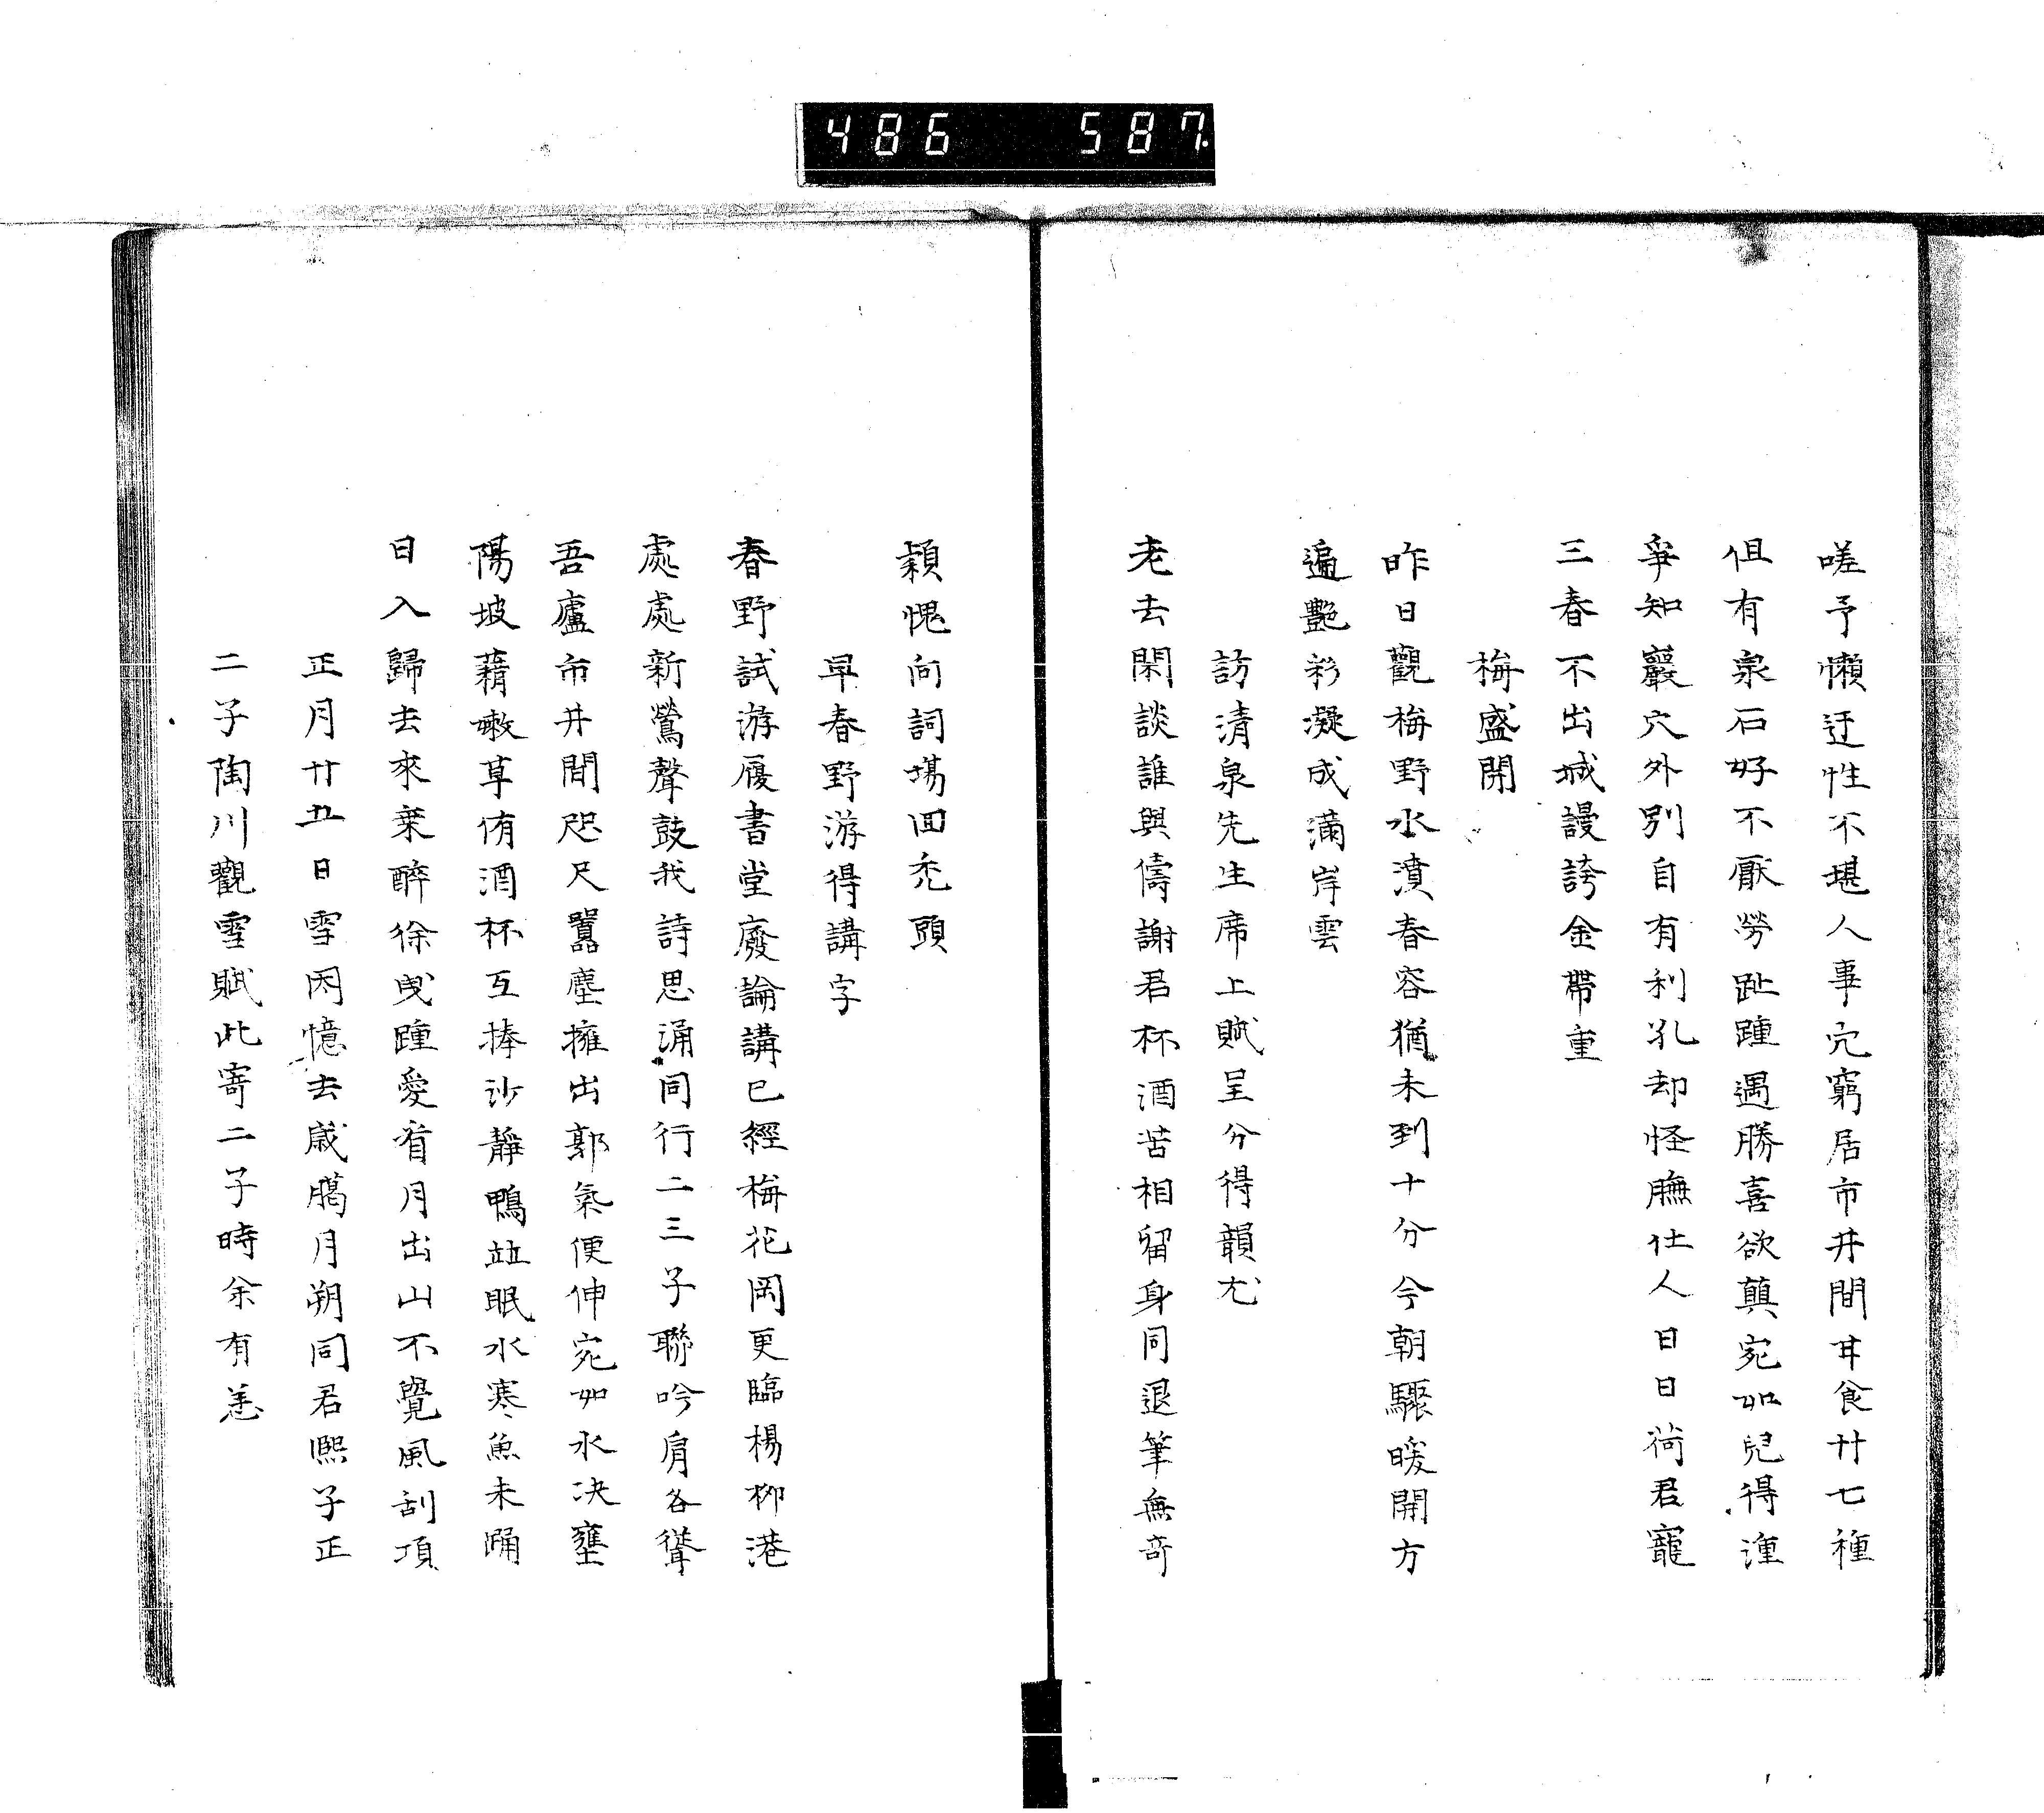 486 587
嗟予懶迂性不堪人事宂窮居市井間甘食廿七種
但有泉石好不厭勞趾踵遇勝喜欲顛宛如兒得湩
爭知巖穴外別自有利孔却怪膴仕人日日荷君寵
三春不出城謾誇金帶重
梅盛開
昨日觀梅野水濆春容猶未到十分今朝驟暖開方
遍艷彩凝成滿岸雲
訪清泉先生席上賦呈分得韻尤
老去閑談誰與儔謝君杯酒苦相留身同退筆無奇
穎愧向詞場回禿頭
早春野游得講字
春野試游履書堂廢論講已經梅花岡更臨楊柳港
處處新鶯聲鼓我詩思涌同行二三子聯吟肩各聳
吾廬市井間咫尺囂塵擁出郭氣便伸宛如水决壅
陽坡藉嫩草侑酒杯互捧沙靜鴨並眠水寒魚未踊
日入歸去來乗醉徐曳踵愛看月出山不覺風刮項
正月廿五日雪因憶去歲臈月朔同君熙子正
二子陶川觀雪賦此寄二子時余有恙